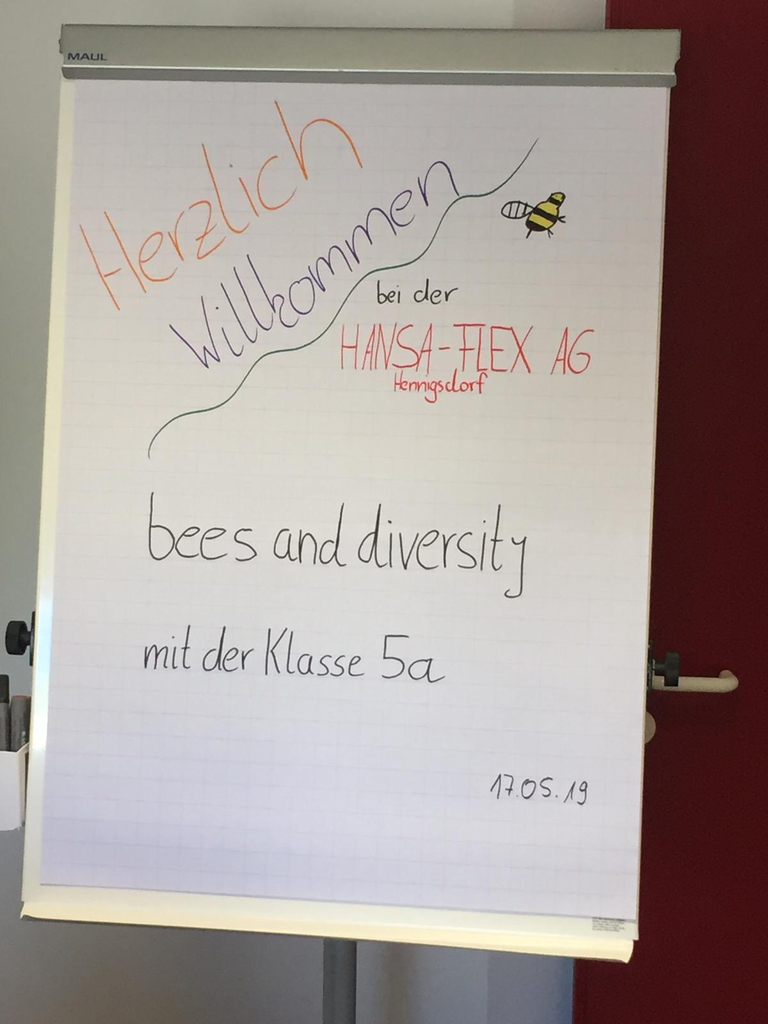 MAUL
Herzlich
Willkommen
bei der
HANSA-FLEX AG
Hennigsdorf
bees and diversity
mit der Klasse 5a
17.05.19